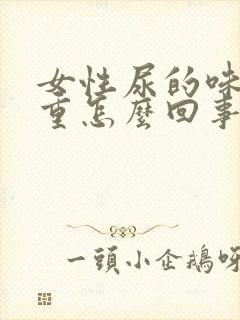 女性尿的味
重怎麼回事
一頭小企鵝呀